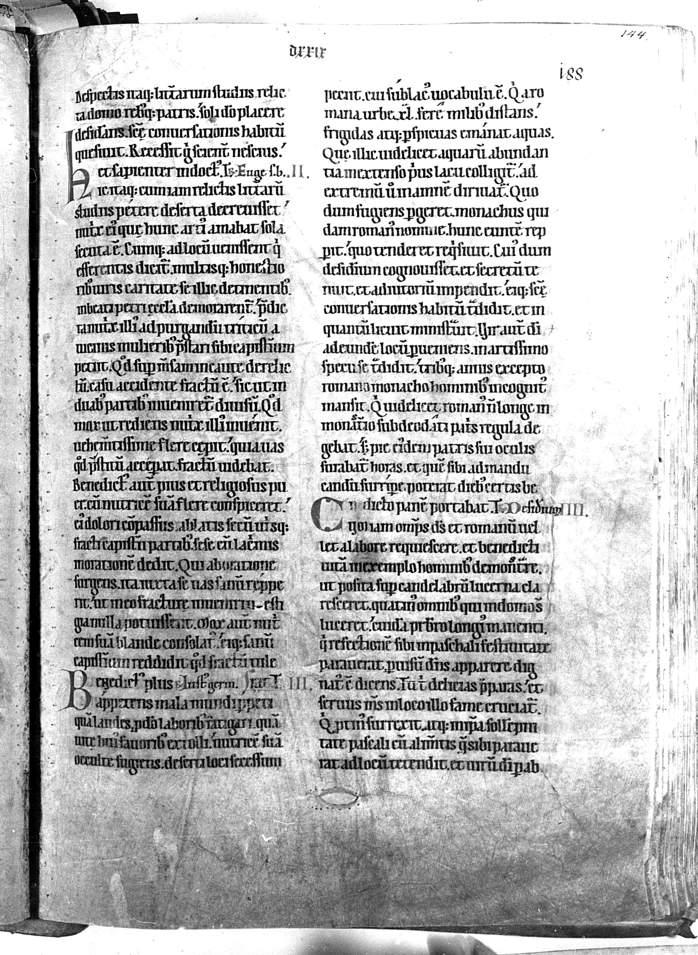 dxxix
144
188
Despectis itaq; litt̄arum studiis. relic
ta domo rebusq; patris. soli dō placere
desiđans. scē conuersationis habitū
quesiuit. Recessit g̊ scient̄ nescius.
et sapienter indoct᷒.
hic itaq; cum iam relictis litt̄arū
studiis petere deserta decreuisset.
nutͥx eͥ que hunc artͥ amabat sola
secuta ē. Cumq; ad locū uenissent q͛
efferentis dicit᷒. multisq; honestio
ribus uiris caritate se illic detinentibꝰ.
in beati petri ecclͣa demorarent᷒. p̄dic
ta nutͥx illiꝰ ad purgandū triticū a
uicinis mulieribꝰ p̄stari sibi capisteriū
petiit. Qd̓ sup mēsam incaute derelic
tū. casu accidente fractū ē. sic ut in
duabꝰ partibꝰ inueniret᷒ diuisū. Qd̓
mox ut rediens nutͥx illiꝰ inuenit.
uehem̄tissime flere cepit. quia uas
qd̓ p̄stitū accepat. fractū uidebat.
Benedict᷒ aut̄ pius et religiosus pu
er. cū nutricē suā flere conspiceret.
eiꝰ dolori cōpassus. ablatis secū utͥsq;
fracti capisterii partibꝰ. sese cū lacͥmis
in orationē dedit. Qui ab oratione
surgens. ita iuxta se uas sanū reppe
rit. ut in eo fracture inueniri uestī
gia nulla potuissent. Mox aut̄ nutͥ
cem suā blande consolat᷒. eiq; sanū
capisterium reddidit. qd̓ fractū tule
III.
Benedict᷒ plus
appetens mala mundi ppeti
quā laudes. p dō laboribꝰ fatigari. quā
uite huiꝰ fauoribꝰ extolli. nutricē suā
occulte fugiens. deserti loci secessum
peciit. cui sublacꝰ uocabulū ē. Qͥ a ro
mana urbe. xl. ferē milibꝰ distans.
frigidas atq; pspicuas emanat aquas.
Que illic uidelicet aquarū abundan
tia in extenso pꝰus lacu colligit᷒. ad
extremū u̓ in amnē diriuat᷒. Quo
dum fugiens pgeret. monachus qui
dam romanꝰ nomine. hunc euntē rep
pit. quo tenderet reqͥsiuit. Cuiꝰ dum
desiđium cognouisset. et secretū te
nuit. et adiutoriū impendit. eiq; scē
conuersationis habitū tͣdidit. et in
quantū licuit ministͣuit. Vir aut̄ dī
ad eundē locū pueniens. in artissimo
specu se tͣdidit. tribꝰq; annis excepto
romano monacho hominibꝰ incognitꝰ
mansit. Qͥ uidelicet romanꝰ n̄ longe in
monast̄io sub deodati patͥs regula de
gebat. s; pie eiꝰdem patris sui oculis
furabat᷒ horas. et quē sibi ad mandu
candū surripe poterat. diebꝰ certis be
nedicto panē portabat.
III.
Cum iam omp̄s dš et romanū uel
let a labore requiescere. et benedicti
uitā in exemplo hominibꝰ demonstͣre.
ut posita sup candelabrū lucerna cla
resceret. quatinꝰ omnibꝰ qui in domo š
luceret. cuidā prb̄ro longiꝰ manenti.
qͥ refectionē sibi in paschali festiuitate
parauerat. p uisū dn̄s apparere dig
natꝰ ē dicens. Tu tͥ delicias pparas. et
seruus mš in loco illo fame cruciat᷒.
Qͥ ptinꝰ surrexit. atq; in ipsa sollempni
tate pascali cū alimtͥis q̄ sibi paraue
rat. ad locū tetendit. et uirū dī p ab